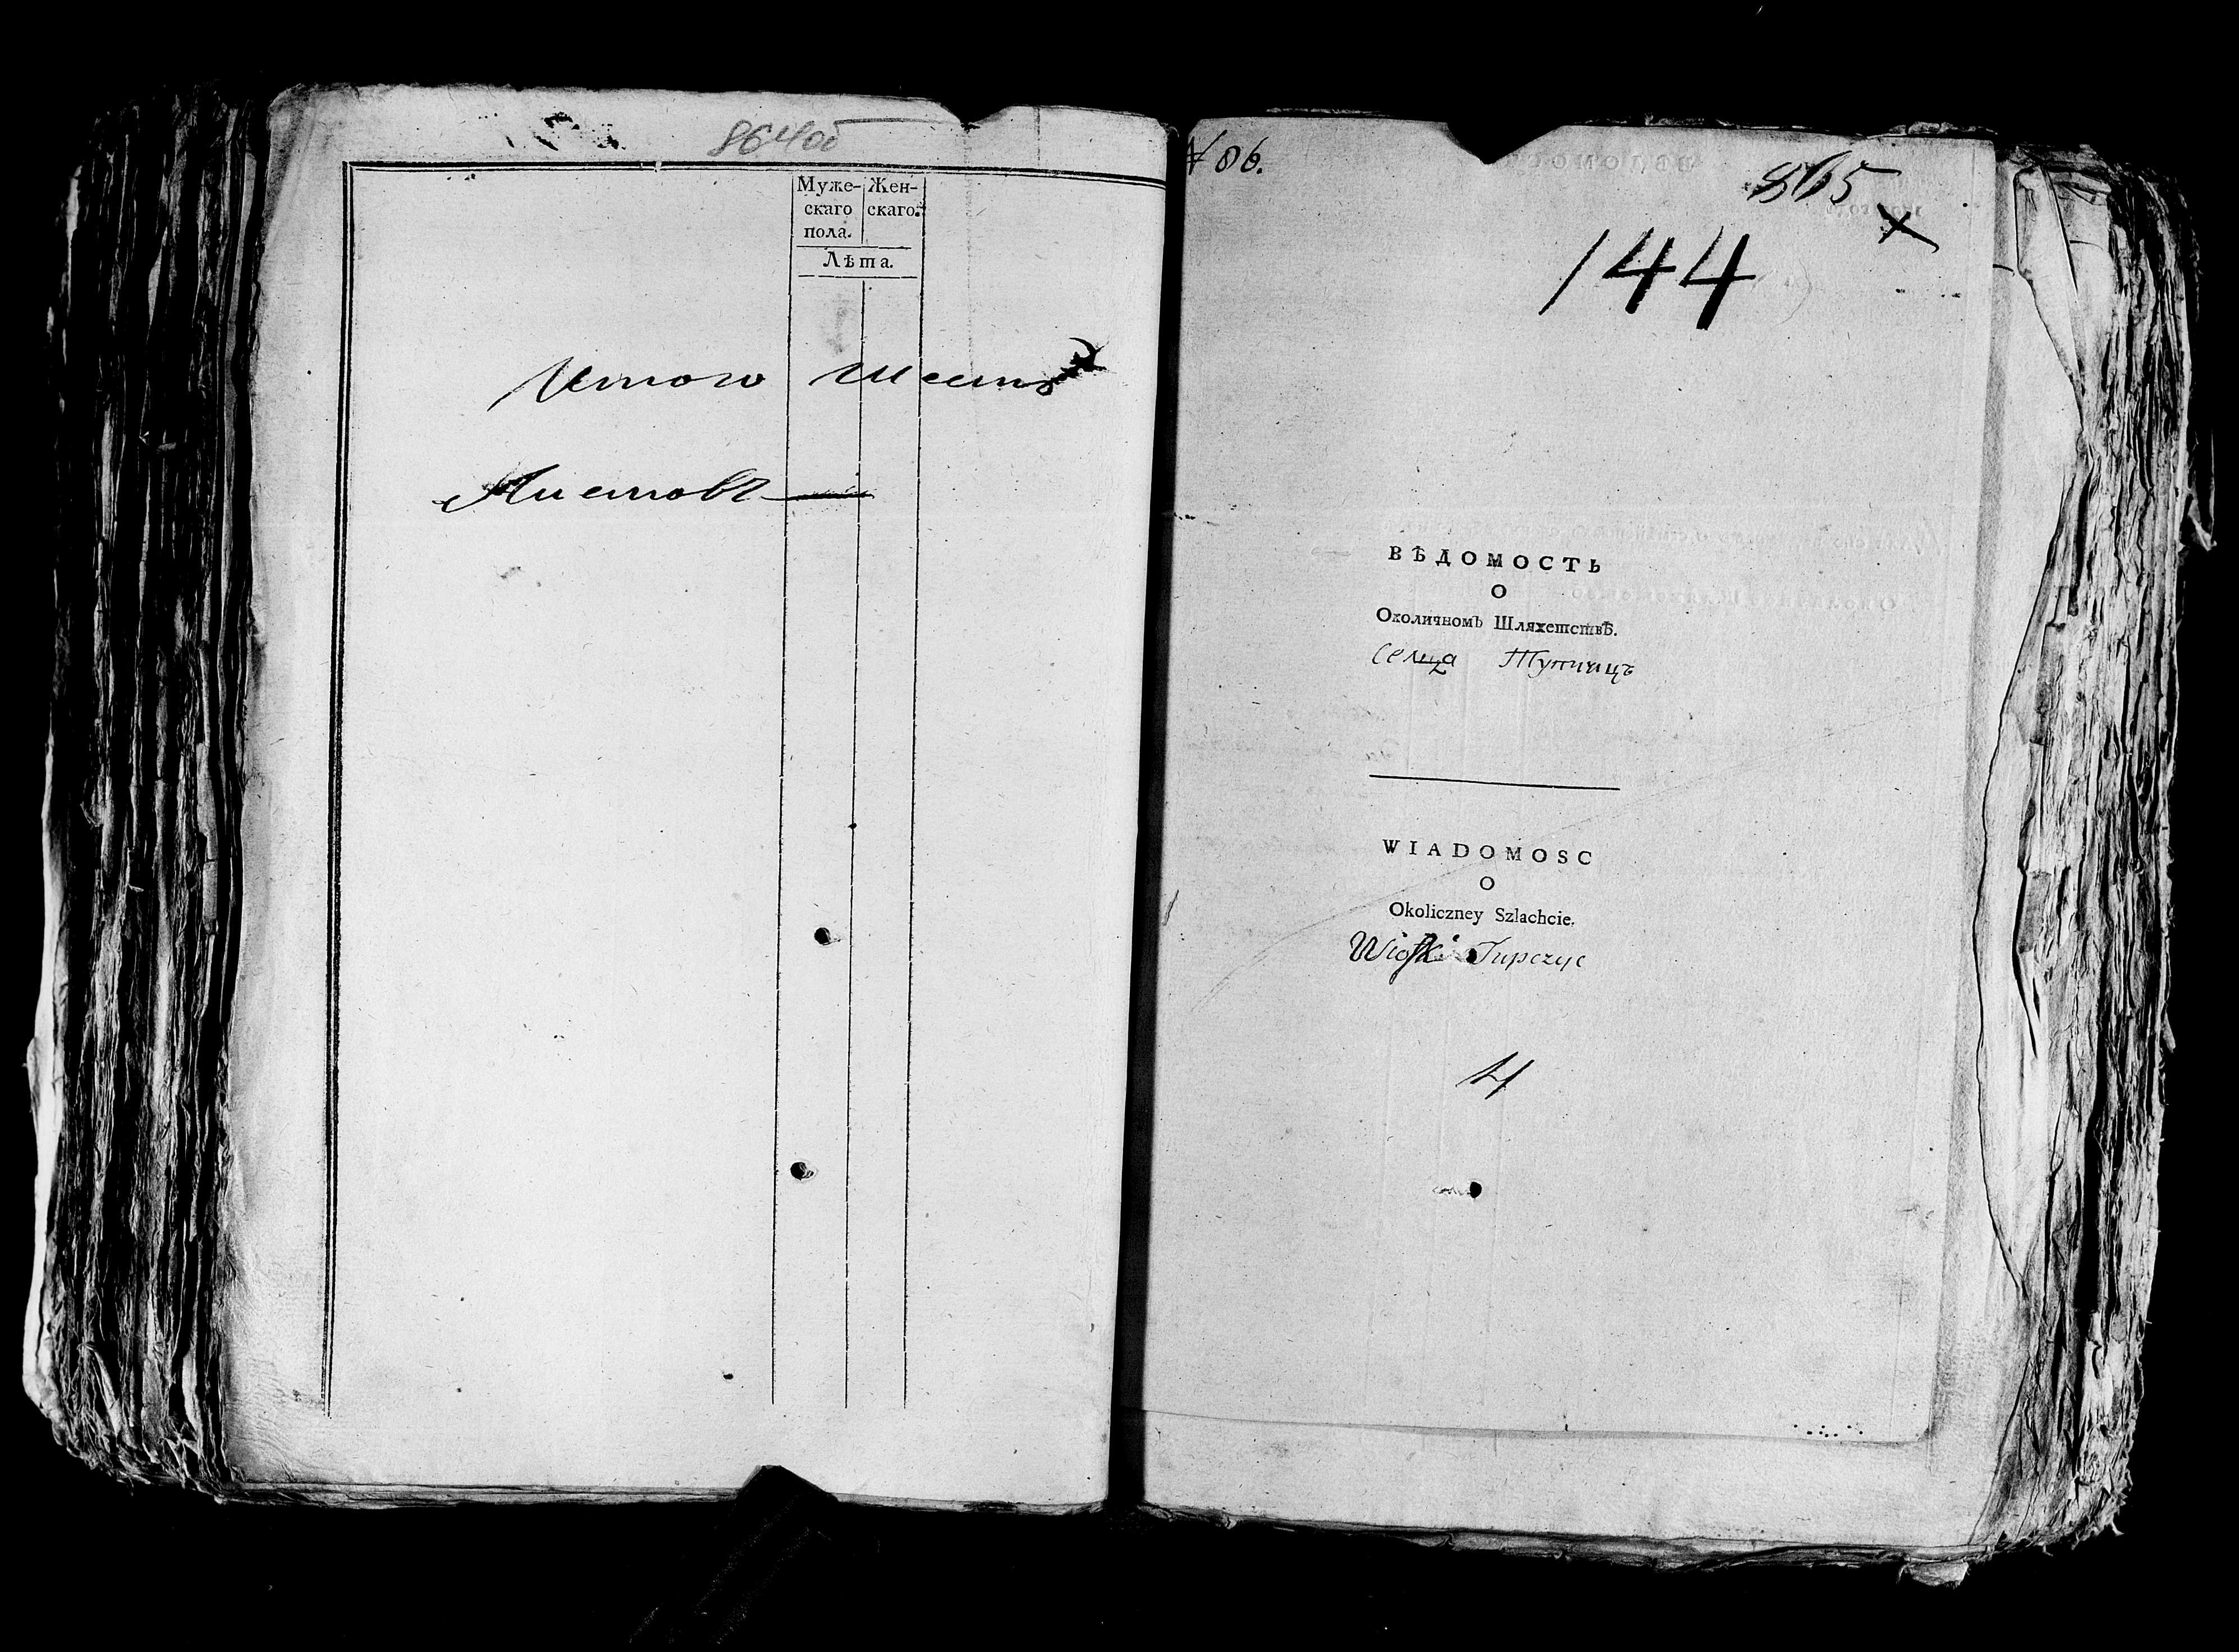 864об
Муже- Жен-
скаго скаго.
пола.
Лѣта.
Итого шесть
Листовъ
№ 86.
865
144
ВѢДОМОСТЬ
О
Околичномъ Шляхетствѣ.
Селца Тупчицъ
WIADOMOSC
O
Okoliczney Szlachcie.
Wioski Tupczyc
4